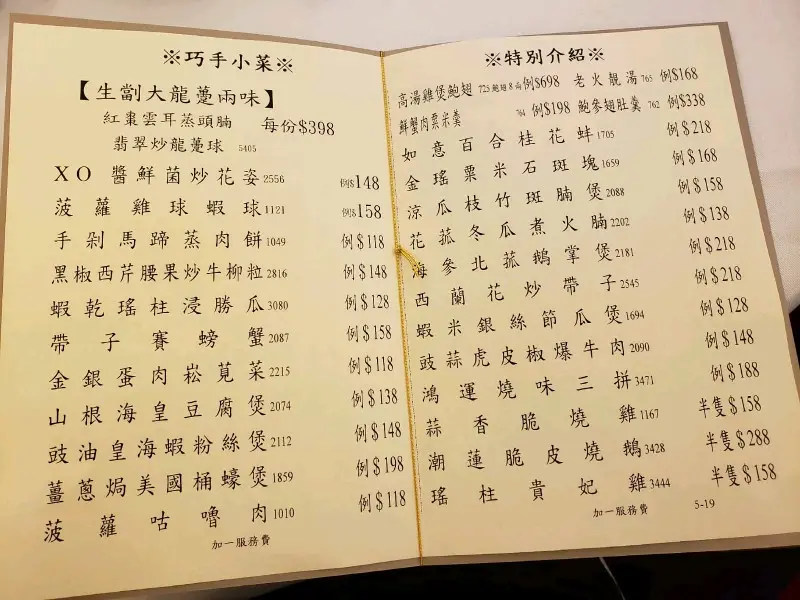 ※巧手小菜※
【生劏大龍躉兩味】
紅棗雲耳蒸頭腩 每份$398
翡翠炒龍躉球 5405
XO醬鮮菌炒花姿 2556 例$148
菠蘿雞球蝦球 1121 例$158
手剁馬蹄蒸肉餅 1049 例$118
黑椒西芹腰果炒牛柳粒 2816 例$148
蝦乾瑤柱浸勝瓜 3080 例$128
帶子賽螃蟹 2087 例$158
金銀蛋肉崧莧菜 2215 例$118
山根海皇豆腐煲 2074 例$138
豉油皇海蝦粉絲煲 2112 例$148
薑蔥焗美國桶蠔煲 1859 例$198
菠蘿咕嚕肉 1010 例$118
加一服務費
※特別介紹※
高湯雞煲鮑翅 725 鮑翅8兩 例$698 老火靚湯 765 例$168
鮮蟹肉粟米羹 764 例$198 鮑參翅肚羹 762 例$338
如意百合桂花蚌 1705 例$218
金瑤粟米石斑塊 1659 例$168
涼瓜枝竹斑腩煲 2088 例$158
花菰冬瓜煮火腩 2202 例$138
海參北菰鵝掌煲 2181 例$218
西蘭花炒帶子 2545 例$218
蝦米銀絲節瓜煲 1694 例$128
豉蒜虎皮椒爆牛肉 2090 例$148
鴻運燒味三拼 3471 例$188
蒜香脆燒雞 1167 半隻$158
潮蓮脆皮燒鵝 3428 半隻$288
瑤柱貴妃雞 3444 半隻$158
加一服務費 5-19